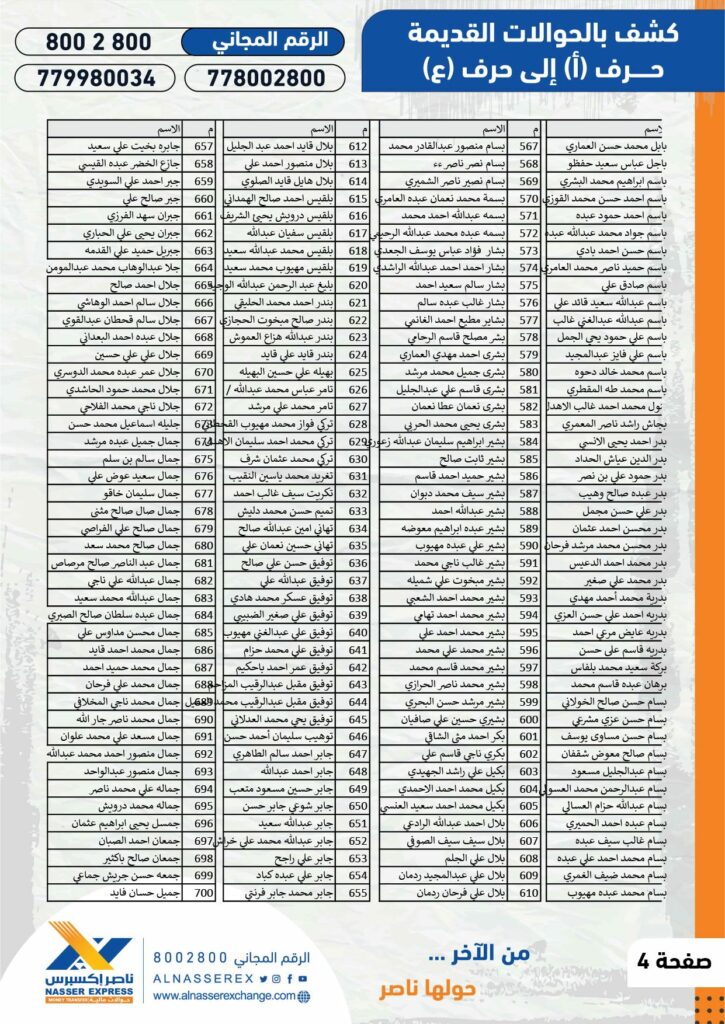 كشف بالحوالات القديمة
حرف (أ) إلى حرف (ع)
الرقم المجاني 800 2 800
778002800
779980034
لاسم
بابل محمد حسن العماري
باجل عباس سعيد حفظو
باسم ابراهيم محمد البشري
باسم احمد حسن محمد القوزي
باسم احمد حمود عبده
باسم جواد محمد عبدالله عبده
باسم حسن احمد بادي
باسم حميد ناصر محمد العامري
باسم صادق علي
باسم عبدالله سعيد قائد علي
باسم عبدالله عبدالغني غالب
باسم علي حمود يحي الجمل
باسم علي فايز عبدالمجيد
باسم محمد خالد دحوه
باسم محمد طه المقطري
نول محمد احمد غالب الاهدل
بجاش راشد ناصر المعمري
بدر احمد يحيى الانسي
بدر الدين عياش الحداد
بدر حمود علي بن نصر
بدر عبده صالح وهيب
بدر علي حسن مجمل
بدر محسن احمد عثمان
بدر محسن محمد مرشد فرحان
بدر محمد احمد الدعيس
بدر محمد علي صغير
بدرية محمد أحمد مهدي
بدريه احمد علي حسن العزي
بدريه عايض مرعي احمد
بدريه قاسم على حسن
بركة سعيد محمد بلفاس
برهان عبده قاسم محمد
بسام حسن صالح الخولاني
بسام حسن عزي مشرعي
بسام حسن مساوى يوسف
بسام صالح معوض شقفان
بسام عبدالجليل مسعود
بسام عبدالرحمن محمد العسولي
بسام عبدالله حزام العسالي
بسام عبده احمد الحميري
بسام غالب سيف عبده
بسام محمد احمد علي عبده
بسام محمد ضيف الغمري
بسام محمد عبده مهيوب
م الاسم
567 بسام منصور عبدالقادر محمد
568 بسام نصر ناصر ءء
569 بسام نصير ناصر الشميري
570 بسمة محمد نعمان عبده العامري
571 بسمه عبدالله احمد محمد
572 بسمه عبده محمد عبدالله الرحيمي
573 بشار فؤاد عباس يوسف الجعدي
574 بشار احمد احمد عبدالله الراشدي
575 بشار سالم سعيد احمد
576 بشار غالب عبده سالم
577 بشاير مطيع احمد الغانمي
578 بشر مصلح قاسم الرحامي
579 بشرى احمد مهدي العماري
580 بشرى جميل محمد مرشد
581 بشرى قاسم علي عبدالجليل
582 بشرى نعمان عطا نعمان
583 بشرى يحيى محمد الحربي
584 بشير ابراهيم سليمان عبدالله زعوري
585 بشير ثابت صالح
586 بشير حميد احمد قاسم
587 بشير سيف محمد دبوان
588 بشير عبدالله احمد
589 بشير عبده ابراهيم معوضه
590 بشير علي عبده مهيوب
591 بشير غالب ناجي محمد
592 بشير مبخوت علي شميله
593 بشير محمد احمد الشعبي
594 بشير محمد احمد تهامي
595 بشير محمد احمد علي
596 بشير محمد علي محمد
597 بشير محمد قاسم محمد
598 بشير محمد ناصر الحرازي
599 بشير مرشد حسن البحري
600 بشيري حسين علي صافيان
601 بكر احمد مثى الشافي
602 بكري ناجي قاسم علي
603 بكيل علي راشد الجهيدي
604 بكيل محمد احمد الاحمدي
605 بكيل محمد احمد سعيد العنسي
606 بلال احمد عبدالله الرادعي
607 بلال سيف سيف الصوفي
608 بلال علي الجلم
609 بلال علي عبدالمجيد ردمان
610 بلال علي فرحان ردمان
م الاسم
612 بلال قايد احمد عبد الجليل
613 بلال منصور احمد علي
614 بلال هايل قايد الصلوي
615 بلقيس احمد صالح الهمداني
616 بلقيس درويش يحيئ الشريف
617 بلقيس سفيان عبدالله
618 بلقيس محمد عبدالله سعيد
619 بلقيس مهيوب محمد سعيد
620 بليغ عبد الرحمن عبدالله الوجيه
621 بندر احمد محمد الحليقي
622 بندر صالح مبخوت الحجازي
623 بندر عبدالله هزاع العموش
624 بندر قايد علي قايد
625 بهيله علي حسين البهيله
626 تامر عباس محمد عبدالله /
627 تامر محمد علي مرشد
628 تركي فواز محمد مهيوب القحطاني
629 تركي محمد احمد سليمان الاهدل
630 تركي محمد عثمان شرف
631 تغريد محمد ياسين النقيب
632 تكريت سيف غالب احمد
633 تميم حسن محمد دليش
634 تهاني امين عبدالله صالح
635 تهاني حسين نعمان علي
636 توفيق حسن علي صالح
637 توفيق عبدالله علي
638 توفيق عسكر محمد هادي
639 توفيق علي صغير الضبيبي
640 توفيق علي عبدالغني مهيوب
641 توفيق علي محمد حزام
642 توفيق عمر احمد باحكيم
643 توفيق مقبل عبدالرقيب المزاحم
644 توفيق مقبل عبدالرقيب محمد
645 توفيق يحي محمد العدلاني
646 توهيب سليمان أحمد حسن
647 جابر احمد سالم الطاهري
648 جابر احمد عبدالله
649 جابر حسين مسعود متعب
650 جابر شوعي جابر حسن
651 جابر عبدالله سعيد
652 جابر عبدالله محمد علي خراش
653 جابر علي راجح
654 جابر علي عبده كباد
655 جابر محمد جابر فرنتي
م الاسم
657 جابره بخيت علي سعيد
658 جازع الخضر عبده القيسي
659 جبر احمد علي السويدي
660 جبر صالح علي
661 جبران سهد الفرزي
662 جبران يحيى علي الحباري
663 جبريل حميد علي القدمه
664 جلا عبدالوهاب محمد عبدالمومن
665 جلال احمد صالح
666 جلال سالم احمد الوهاشي
667 جلال سالم قحطان عبدالقوي
668 جلال عبده احمد البعداني
669 جلال علي علي حسين
670 جلال عمر عبده محمد الدوسري
671 جلال محمد حمود الحاشدي
672 جلال ناجي محمد الفلاحي
673 جليله اسماعيل محمد حسن
674 جمال جميل عبده مرشد
675 جمال سالم بن سلم
676 جمال سعيد عوض علي
677 جمال سليمان خاقو
678 جمال صال صالح مثنى
679 جمال صالح علي الفراصي
680 جمال صالح محمد سعد
681 جمال عبد الناصر صالح مرصاص
682 جمال عبدالله علي ناجي
683 جمال عبدالله محمد سعيد
684 جمال عبده سلطان صالح الصبري
685 جمال محسن مداوس علي
686 جمال محمد احمد قايد
687 جمال محمد حميد احمد
688 جمال محمد علي فرحان
689 جمال محمد ناجي المخلافي
690 جمال محمد ناصر جار الله
691 جمال مسعد علي محمد علوان
692 جمال منصور احمد محمد عبدالله
693 جمال منصور عبدالواحد
694 جماله علي محمد ناصر
695 جماله محمد درويش
696 جمسل يحيى ابراهيم عثمان
697 جمعان احمد الصبان
698 جمعان صالح باكثير
699 جمعه حسن جريش جماعي
700 جميل حسان فايد
صفحة 4
من الآخر ...
حولها ناصر
الرقم المجاني 8002800
ALNASSEREX
www.alnasserexchange.com
ناصر إكسبرس
NASSER EXPRESS
MONEY TRANSFER حوالات مالية